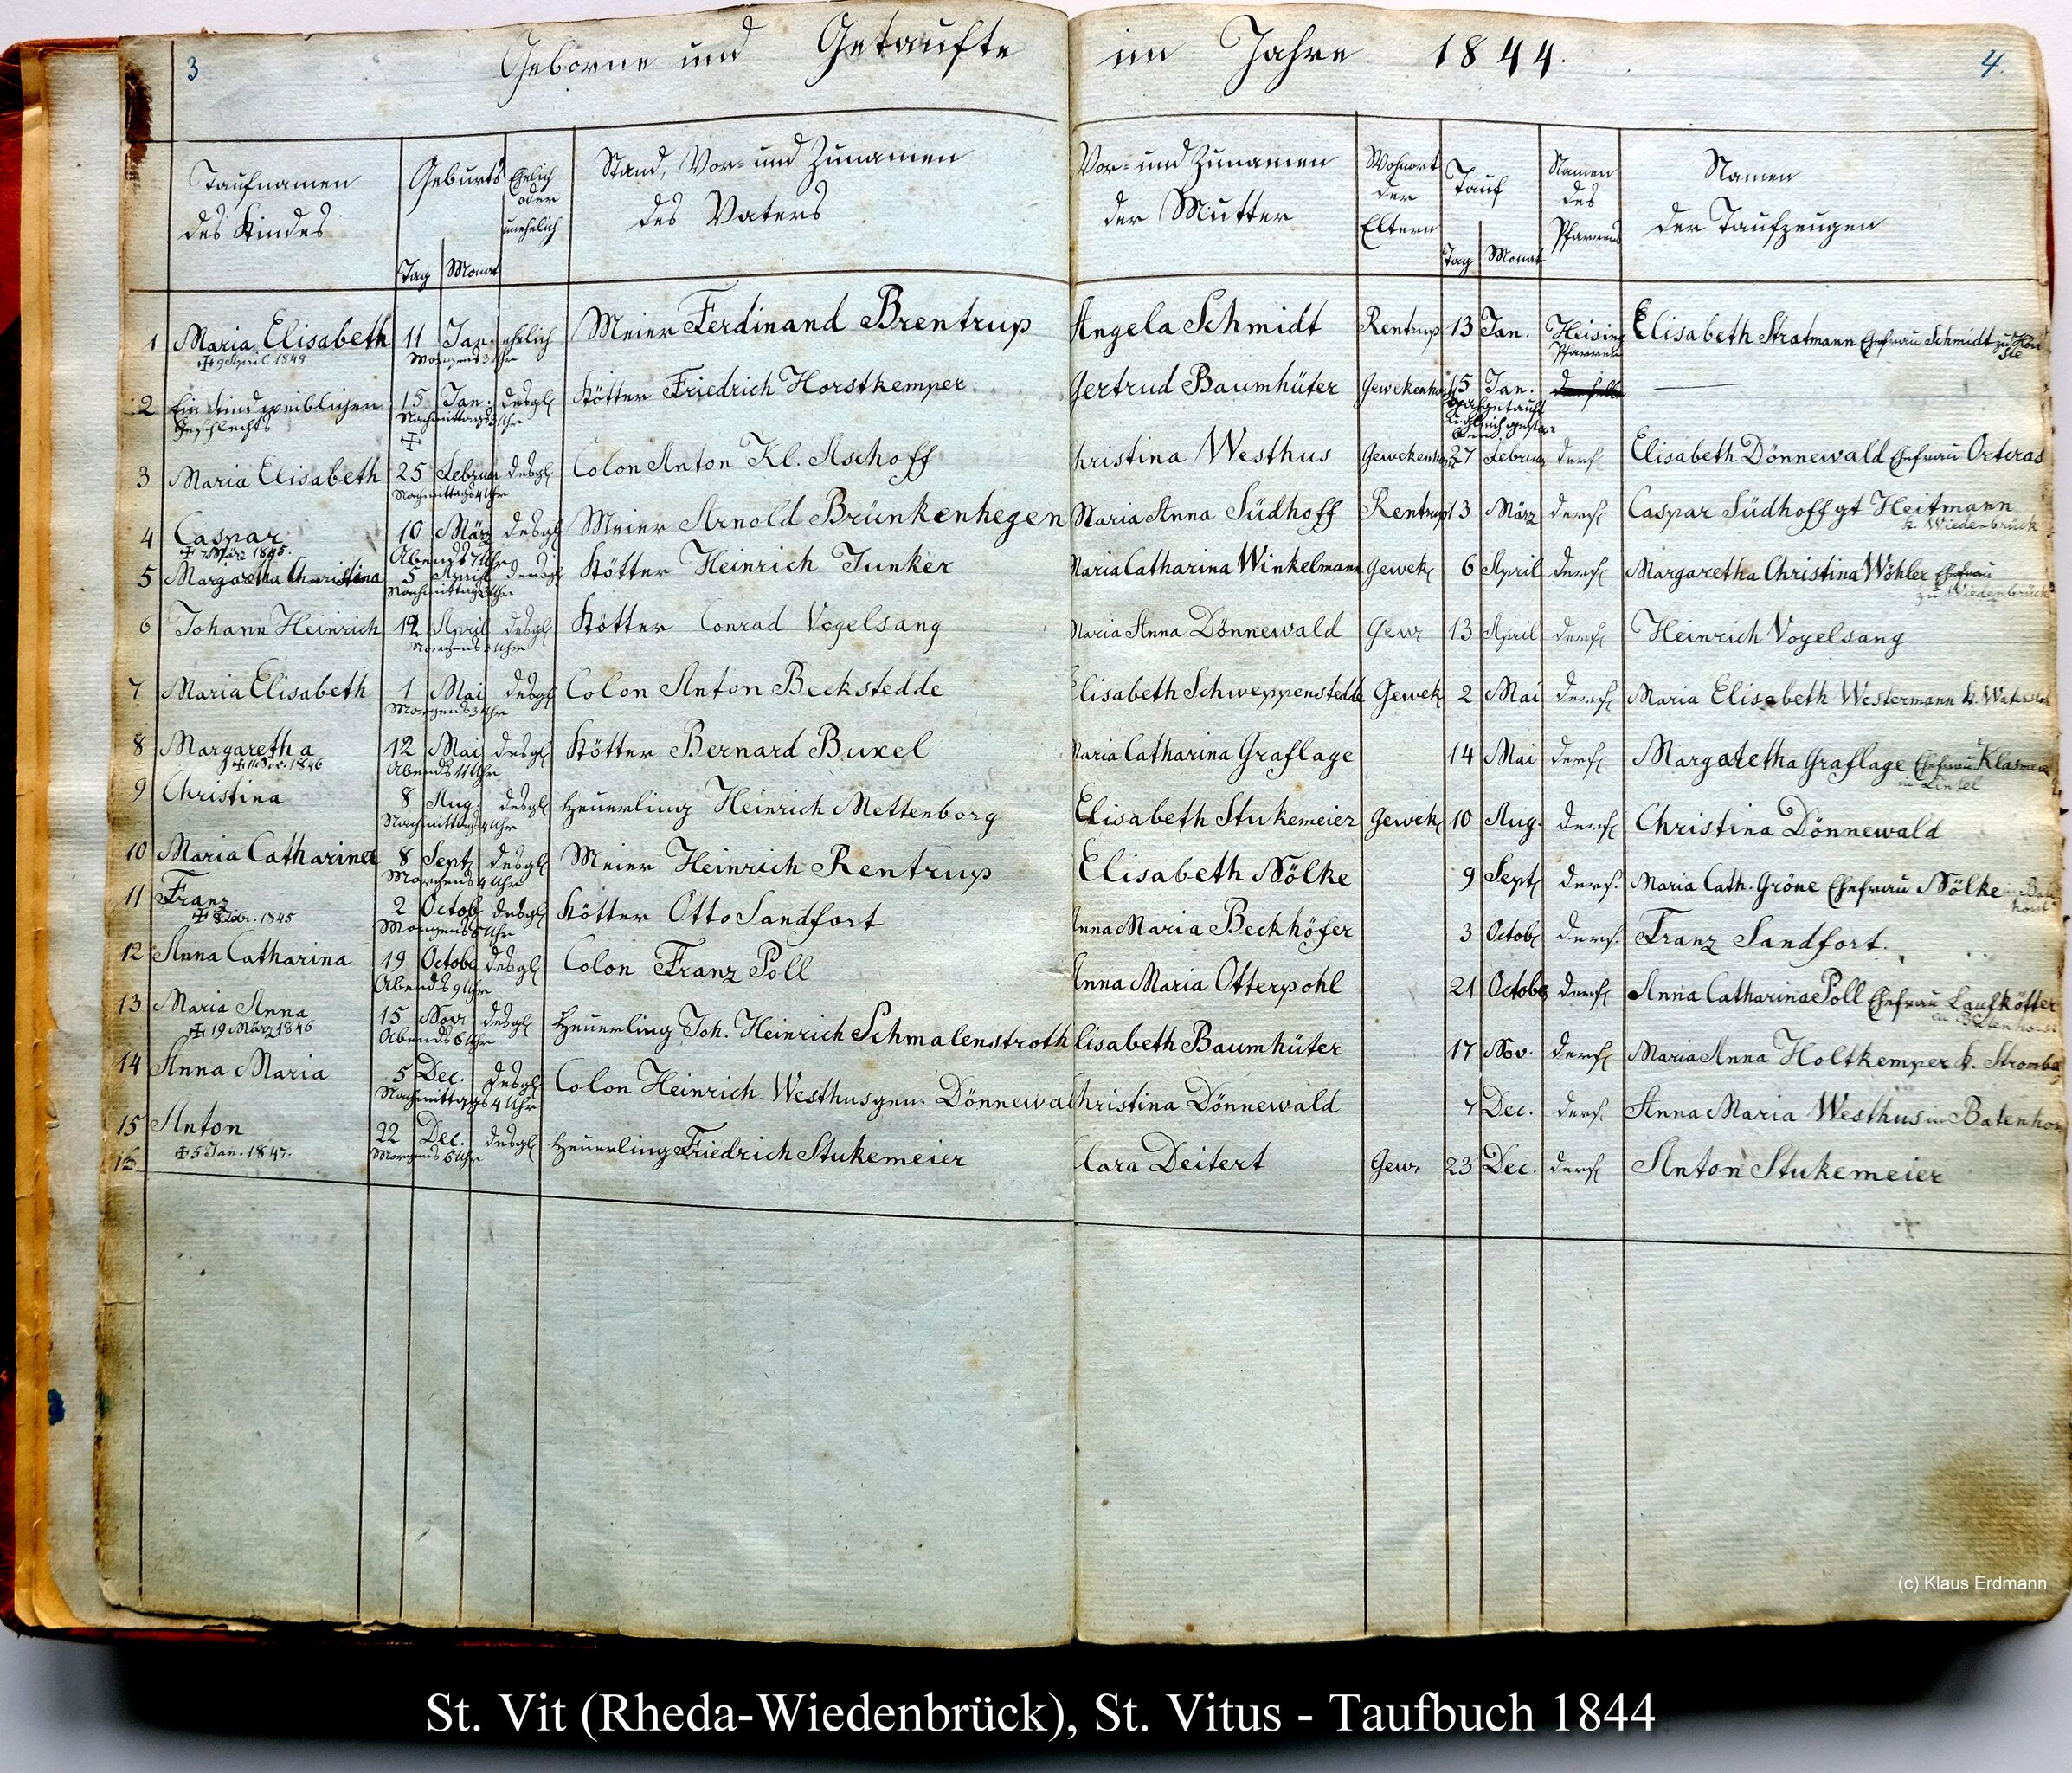 3 Geborne und Getaufte im Jahre 1844. 4.
Taufnamen des Kindes Geburts Tag Monat Ehelich oder unehelich Stand, Vor- und Zunamen des Vaters Vor- und Zunamen der Mutter Wohnort der Eltern Tauf Tag Monat Namen des Pfarrers Namen der Taufzeugen
1 Maria Elisabeth 11 Jan. ehelich Meier Ferdinand Brentrup Angela Schmidt Rentrup 13 Jan. Heising Elisabeth Stratmann Ehefrau Schmidt
✠ 9 April 1849 Morgens 3 Uhr Pfarrer
2 Ein Kind weiblichen 15 Jan. desgl Kötter Friedrich Horstkemper Gertrud Baumhüter Gewekenhorst 15 Jan.
Geschlechts Nachmittags Uhr
✠
3 Maria Elisabeth 25 Februar desgl Colon Anton Kl. Aschoff Christina Westhus Gewekenhorst 27 Februar ders Elisabeth Dönnewald Ehefrau Ortcras
Nachmittags 4 Uhr
4 Caspar 10 März desgl Meier Arnold Brünkenhegen Maria Anna Südhoff Rentrup 13 März ders Caspar Südhoff gt Heitmann
✠ 7 März 1845. Abends 7 Uhr k. Wiedenbrück
5 Margaretha Christina 5 April desgl Kötter Heinrich Junker Maria Catharina Winkelmann Gewek 6 April ders Margaretha Christina Wöhler Ehefrau
Nachmittags Uhr zu Wiedenbrück
6 Johann Heinrich 12 April desgl Kötter Conrad Vogelsang Maria Anna Dönnewald Gew 13 April ders Heinrich Vogelsang
Morgens Uhr
7 Maria Elisabeth 1 Mai desgl Colon Anton Beckstedde Elisabeth Schweppenstedde Gewek 2 Mai ders Maria Elisabeth Westermann k.
Morgens 3 Uhr
8 Margaretha 12 Mai desgl Kötter Bernard Buxel Maria Catharina Graflage 14 Mai ders Margaretha Graflage Ehefrau Klasmeier
✠ 11 Nov. 1846 Abends 11 Uhr in Lintel
9 Christina 8 Aug. desgl Heuerling Heinrich Mettenborg Elisabeth Stukemeier Gewek 10 Aug. ders Christina Dönnewald
Nachmittags 4 Uhr
10 Maria Catharina 8 Sept desgl Meier Heinrich Rentrup Elisabeth Nölke 9 Sept ders. Maria Cath. Gröne Ehefrau Nölke in Batenhorst
Morgens 4 Uhr
11 Franz 2 Octob desgl Kötter Otto Sandfort Anna Maria Beckhöfer 3 Octob ders. Franz Sandfort.
✠ 8 Febr. 1845 Morgens Uhr
12 Anna Catharina 19 Octob desgl Colon Franz Poll Anna Maria Otterpohl 21 Octob ders Anna Catharina Poll Ehefrau Laufkötter
Abends 9 Uhr in Batenhorst
13 Maria Anna 15 Nov desgl Heuerling Joh. Heinrich Schmalenstroth Elisabeth Baumhüter 17 Nov. ders Maria Anna Holtkemper k. Stromberg
✠ 19 März 1846 Abends 6 Uhr
14 Anna Maria 5 Dec. desgl Colon Heinrich Westhus gen. Dönnewald Christina Dönnewald 7 Dec. ders. Anna Maria Westhus in Batenhorst
Nachmittags 4 Uhr
15 Anton 22 Dec. desgl Heuerling Friedrich Stukemeier Clara Deitert Gew. 23 Dec. ders Anton Stukemeier
✠ 5 Jan. 1847. Morgens 6 Uhr
(c) Klaus Erdmann
St. Vit (Rheda-Wiedenbrück), St. Vitus - Taufbuch 1844